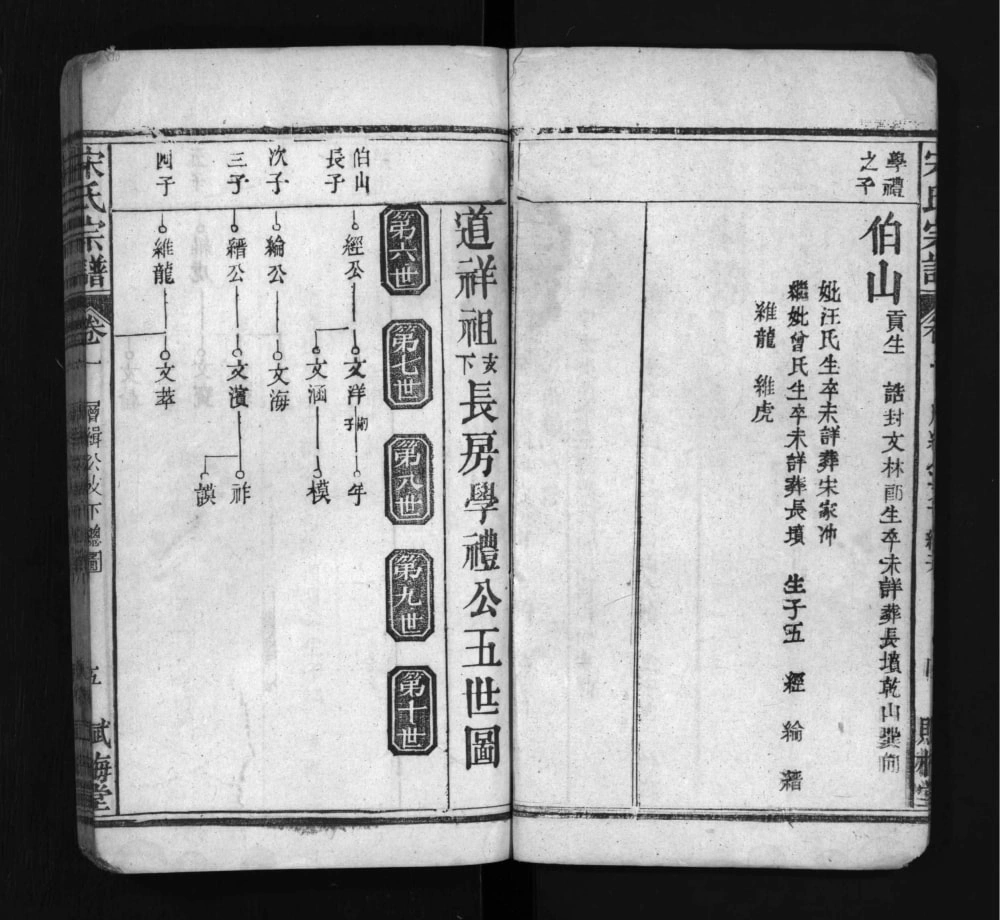 宋氏宗譜
學禮
之子
伯山
貢生 誥封文林郎生卒未詳葬長墳乾山巽向
妣汪氏生卒未詳葬宋家冲
繼妣曾氏生卒未詳葬長墳 生子五 經 綸 縉
維龍 維虎
道祥祖支下長房學禮公五世圖
第六世
第七世
第八世
第九世
第十世
伯山
長子
經公
文洋
文涵
模
次子
綸公
文海
三子
縉公
文濱
祚
謨
四子
維龍
文萃
宋氏宗譜
卷一
五
賦梅堂